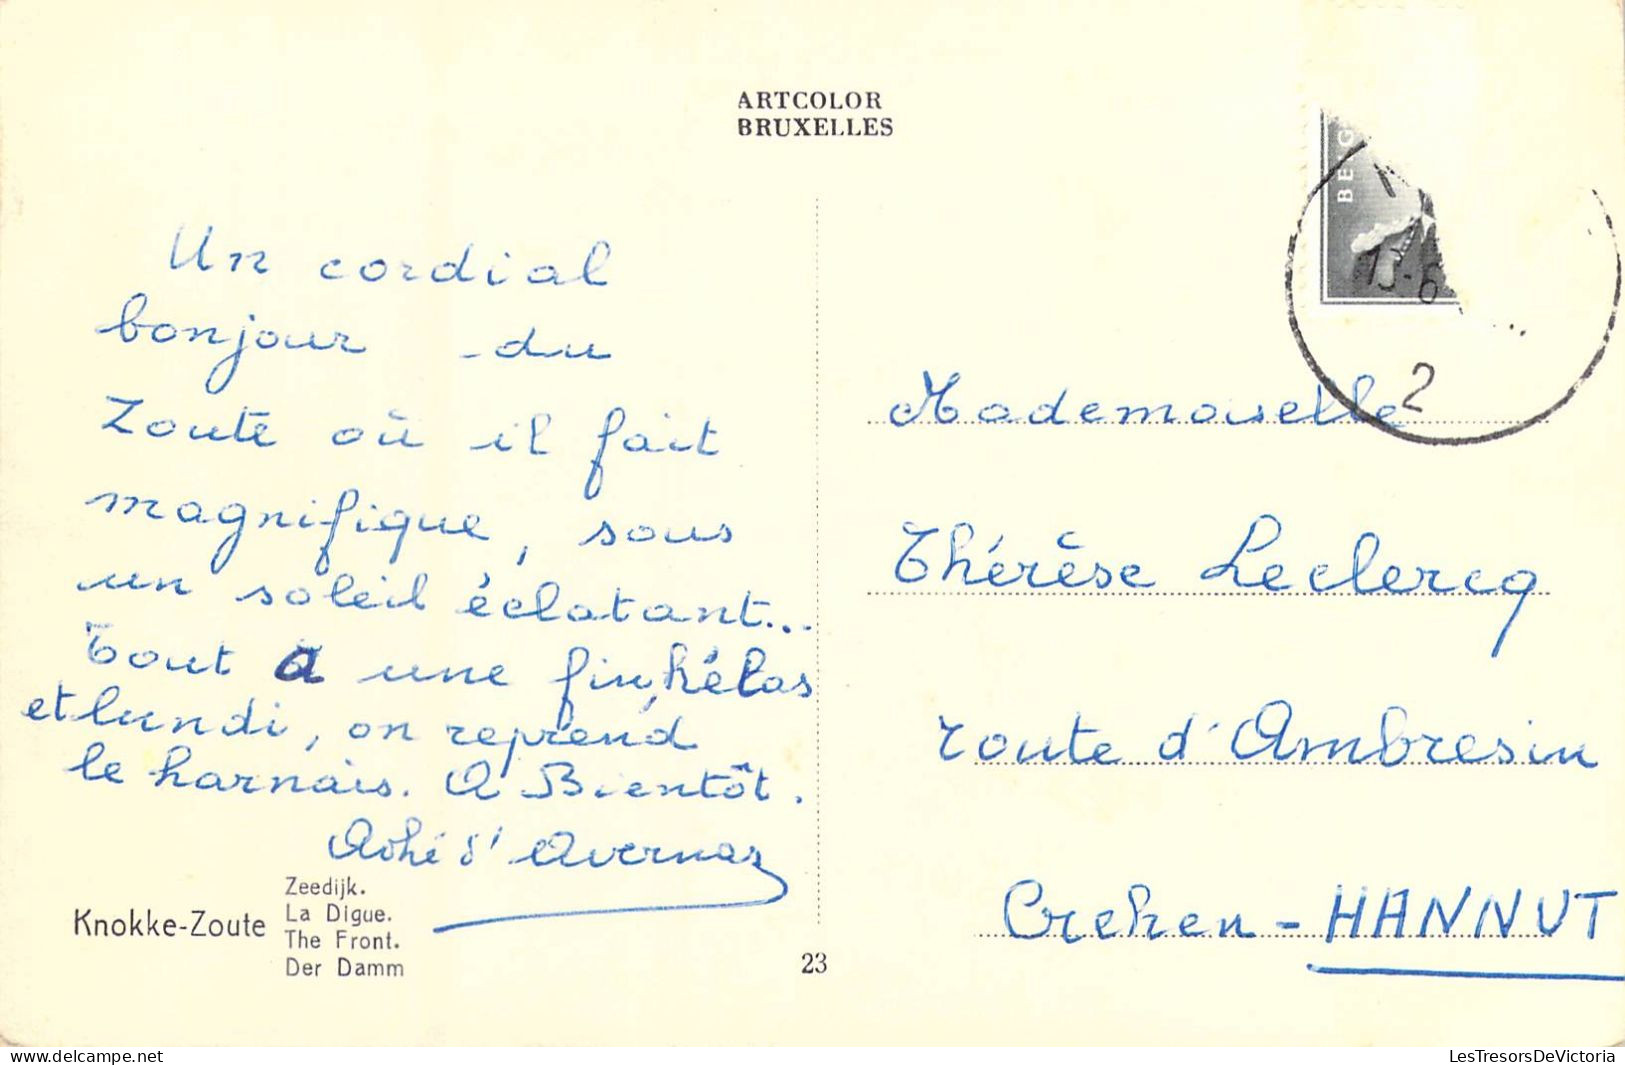 ARTCOLOR
BRUXELLES
BELG
13-6
2
Un cordial
bonjour du
Zoute où il fait
magnifique, sous
un soleil éclatant...
Tout a une fin, hélas
et lundi, on reprend
le harnais. A Bientôt.
d'Avernas
Mademoiselle
Thérèse Leclercq
route d'Ambresin
Crehen - HANNUT
Knokke-Zoute
Zeedijk.
La Digue.
The Front.
Der Damm
23
delcampe.net
LesTresorsDeVictoria